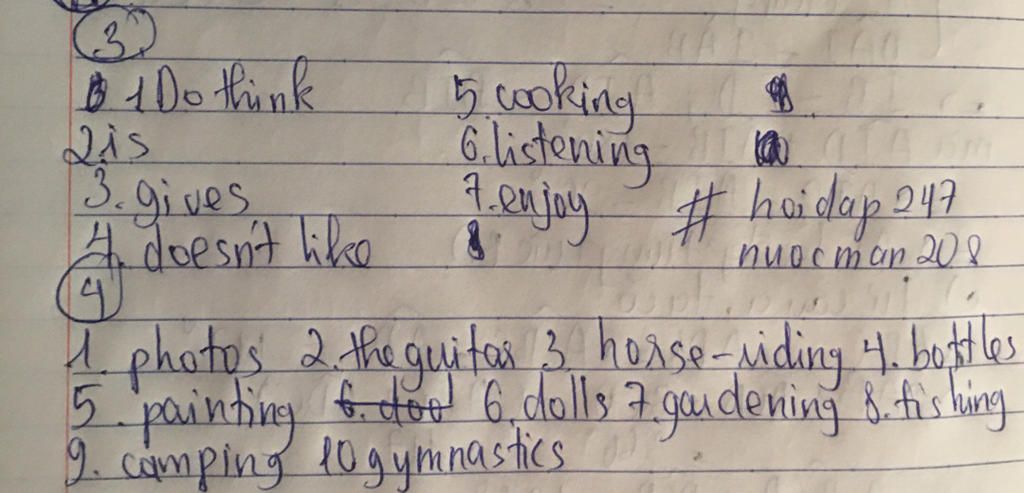 3
1 Do think 5 cooking
2 is 6. listening
3. gives 7. enjoy # hoidap 247
4. doesn't like nuocman 208
4
1. photos 2. the guitar 3. horse-riding 4. bottles
5. painting 6. dool 6. dolls 7. gardening 8. fishing
9. camping 10 gymnastics